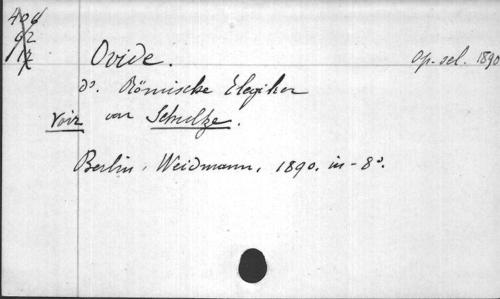 406
62
17
Ovide. Op. sel. 1890
ds. Römische Elegiker
voir von Schultze.
Berlin, Weidmann, 1890. in-8o.